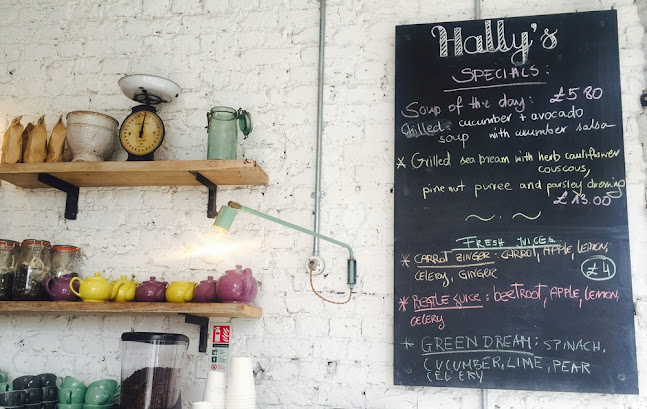 Hally's
SPECIALS:
Soup of the day: £5.80
Chilled: cucumber + avocado
soup with cucumber salsa
* Grilled sea bream with herb cauliflower
couscous,
pine nut puree and parsley dressing
£13.00
FRESH JUICES
* CARROT ZINGER: CARROT, APPLE, LEMON,
CELERY, GINGER £4
* BEETLE JUICE: BEETROOT, APPLE, LEMON,
CELERY
* GREEN DREAM: SPINACH,
CUCUMBER, LIME, PEAR
CELERY